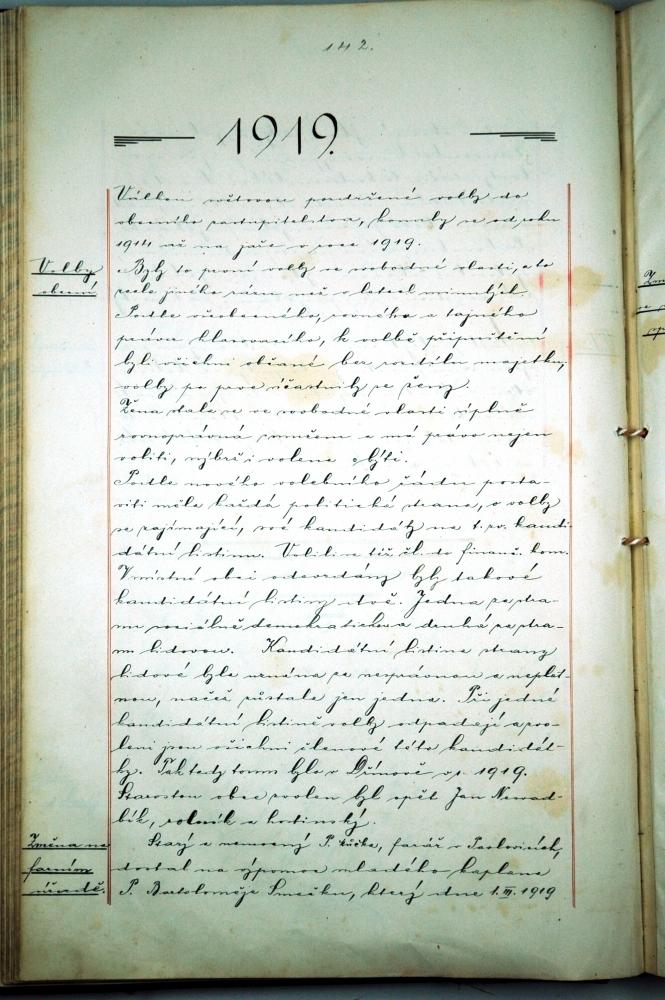 142.
1919.
Válkou světovou pozdržené volby do
obecního zastupitelstva, konaly se od roku
1914 až na jaře v roce 1919.
Volby
obecní
Byly to první volby ve svobodné vlasti, a to
zcela jiného rázu než v letech minulých.
Podle všeobecného, rovného a tajného
práva hlasovacího, k volbě připuštěni
byli všichni občané bez rozdílu majetku,
volby po prvé účastnily se ženy.
Žena stala se ve svobodné vlasti úplně
rovnoprávná s mužem a má právo nejen
voliti, nýbrž i volena býti.
Podle nového volebního řádu posta-
viti měla každá politická strana, o volby
se zajímající, své kandidáty na t. zv. kandi-
dátní listinu. Volili se též čl. do finanč. kom.
V místní obci odevzdány byly takové
kandidátní listiny dvě. Jedna za stra-
nu sociálně demokratickou a druhá za stra-
nu lidovou. Kandidátní listina strany
lidové byla uznána za nesprávnou a neplat-
nou, načež zůstala jen jedna. Při jedné
kandidátní listině volby odpadají a zvo-
leni jsou všichni členové této kandidát-
ky. Tak tedy tomu bylo v Dínově v r. 1919.
Starostou obce zvolen byl opět Jan
rolník a hodinský.
Změna na
farním
úřadě.
Starý a nemocný P. farář v Pavlovicích,
dostal na výpomoc mladého kaplana
P. Bartoloměje Smečku, který dne 1. III. 1919